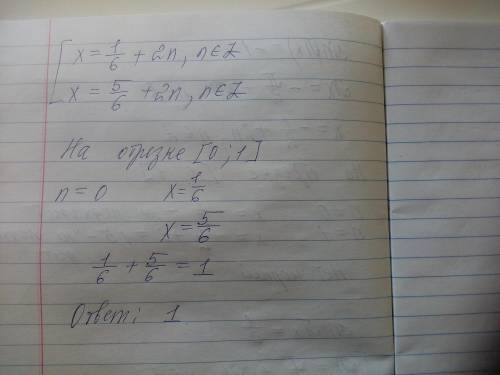 x = 1/6 + 2n, n∈Z
x = 5/6 + 2n, n∈Z
На отрезке [0; 1]
n = 0 x = 1/6
x = 5/6
1/6 + 5/6 = 1
Ответ: 1